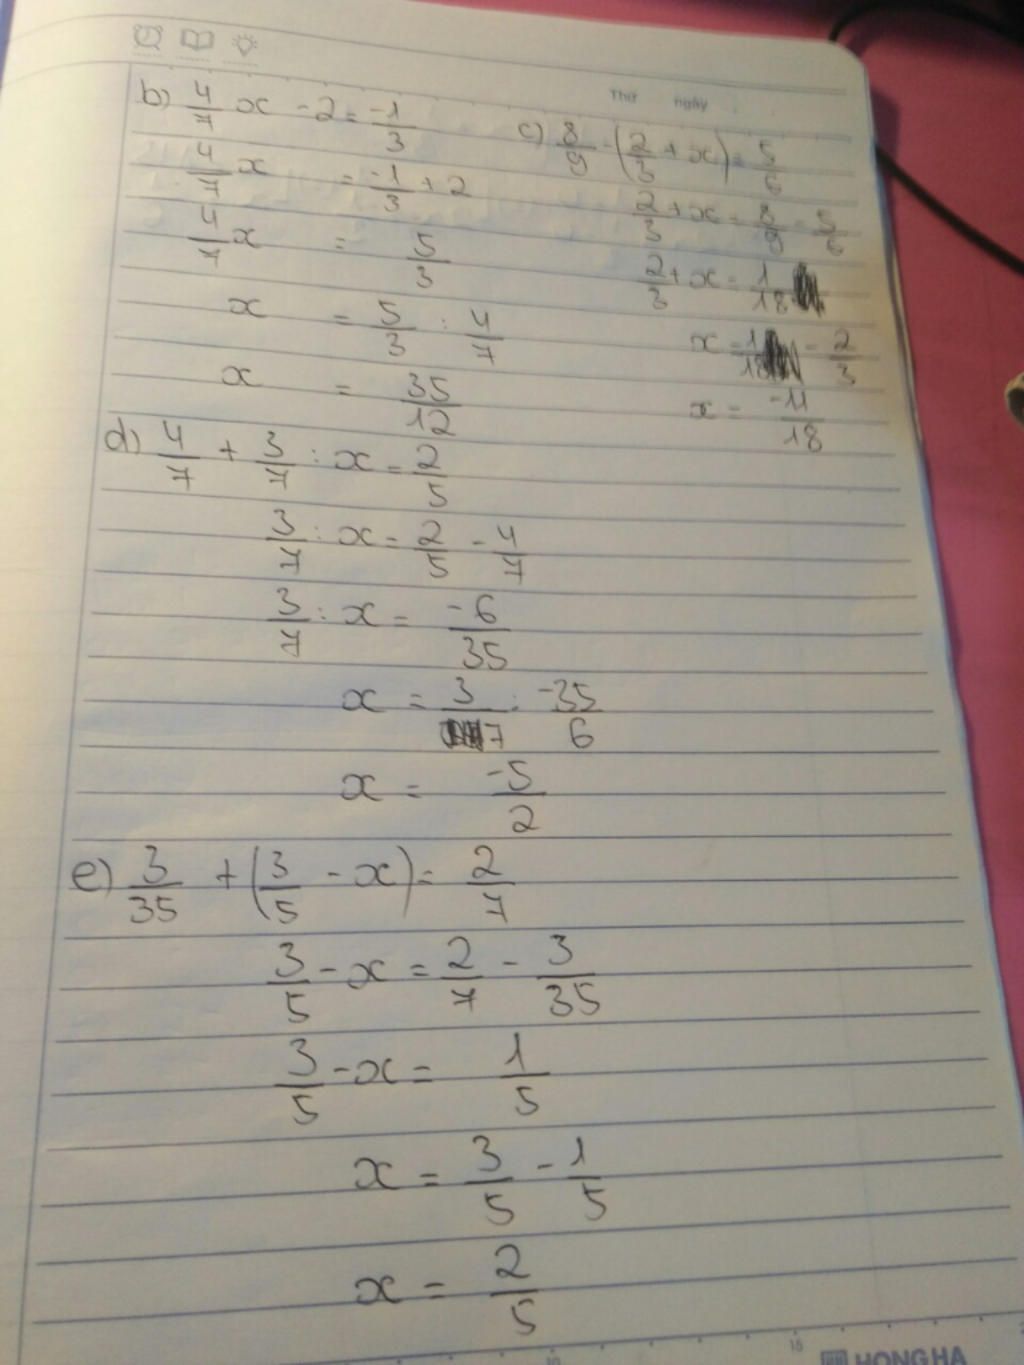 Thứ ngày
b) 4/7 x - 2 = -1/3
4/7 x = -1/3 + 2
4/7 x = 5/3
x = 5/3 : 4/7
x = 35/12
c) 8/9 - (2/3 + x) = 5/6
2/3 + x = 8/9 - 5/6
2/3 + x = 1/18
x = 1/18 - 2/3
x = -11/18
d) 4/7 + 3/7 : x = 2/5
3/7 : x = 2/5 - 4/7
3/7 : x = -6/35
x = 3/7 . -35/6
x = -5/2
e) 3/35 + (3/5 - x) = 2/7
3/5 - x = 2/7 - 3/35
3/5 - x = 1/5
x = 3/5 - 1/5
x = 2/5
10 15
HONG HA